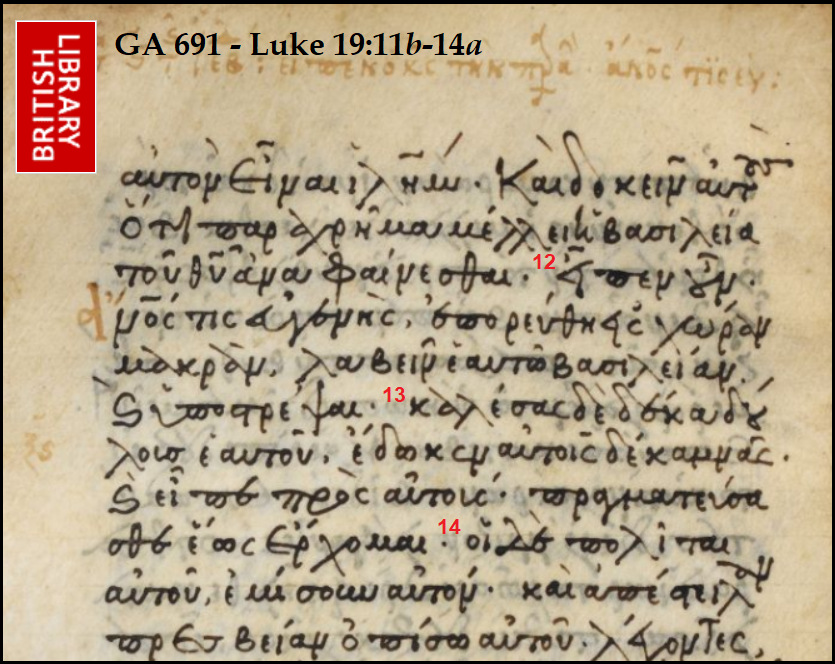 BRITISH
LIBRARY
GA 691 - Luke 19:11b-14a
εἶπεν ὁ κς τὴν πρα· ἄνος τις ευ:
αὐτὸν εἶναι ἰλῆμ· Καὶ δοκεῖν αὐτοὺς
Ὅτι παραχρῆμα μέλλει ἡ βασιλεία
τοῦ θῦ ἀναφαίνεσθαι· 12 εἶπεν οὖν·
ἄνος τις εὐγενὴς, ἐπορεύθη εἰς χώραν
μακρὰν, λαβεῖν ἑαυτῷ βασιλείαν.
ϗ ὑποστρέψαι· 13 καλέσας δὲ δέκα δού
λους ἑαυτοῦ, ἔδωκεν αὐτοῖς δέκα μνᾶς.
ϗ εἶπε πρὸς αὐτούς· πραγματεύσα
σθε ἕως ἔρχομαι· 14 οἱ δὲ πολῖται
αὐτοῦ, ἐμίσουν αὐτόν· καὶ ἀπέστειλαν
πρεσβείαν ὀπίσω αὐτοῦ· λέγοντες,